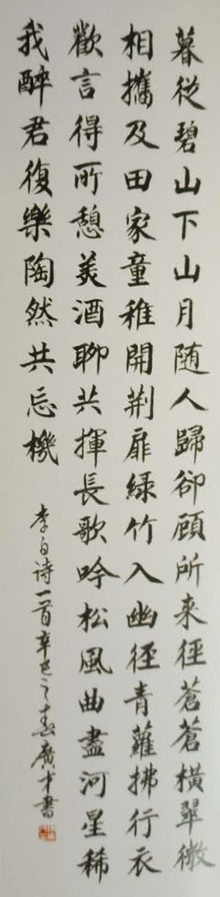 暮從碧山下山月随人歸卻顧所来徑蒼蒼橫翠微
相攜及田家童稚開荆扉緑竹入幽徑青蘿拂行衣
歡言得所憩美酒聊共揮長歌吟松風曲盡河星稀
我醉君復樂陶然共忘機
李白诗一首辛巳之春廣才書